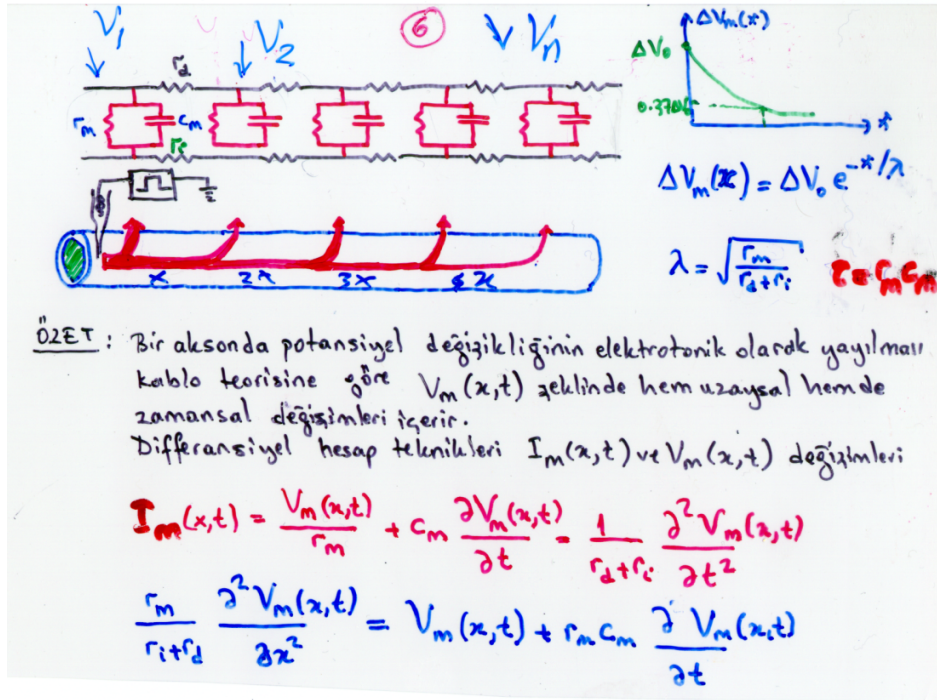 V₁ V₂ 6 V Vₙ
r_d
r_m c_m
r_i
ΔV_m(x)
ΔV₀
x
ΔV_m(x) = ΔV₀ e^{-x/λ}
λ = √(r_m/(r_d+r_i)) τ = r_m c_m
x 2x 3x 4x
ÖZET : Bir aksonda potansiyel değişikliğinin elektrotonik olarak yayılması
kablo teorisine göre V_m(x,t) şeklinde hem uzaysal hem de
zamansal değişimleri içerir.
Differansiyel hesap teknikleri I_m(x,t) ve V_m(x,t) değişimleri
I_m(x,t) = V_m(x,t)/r_m + c_m ∂V_m(x,t)/∂t = 1/(r_d+r_i) ∂²V_m(x,t)/∂t²
r_m/(r_i+r_d) ∂²V_m(x,t)/∂x² = V_m(x,t) + r_m c_m ∂V_m(x,t)/∂t